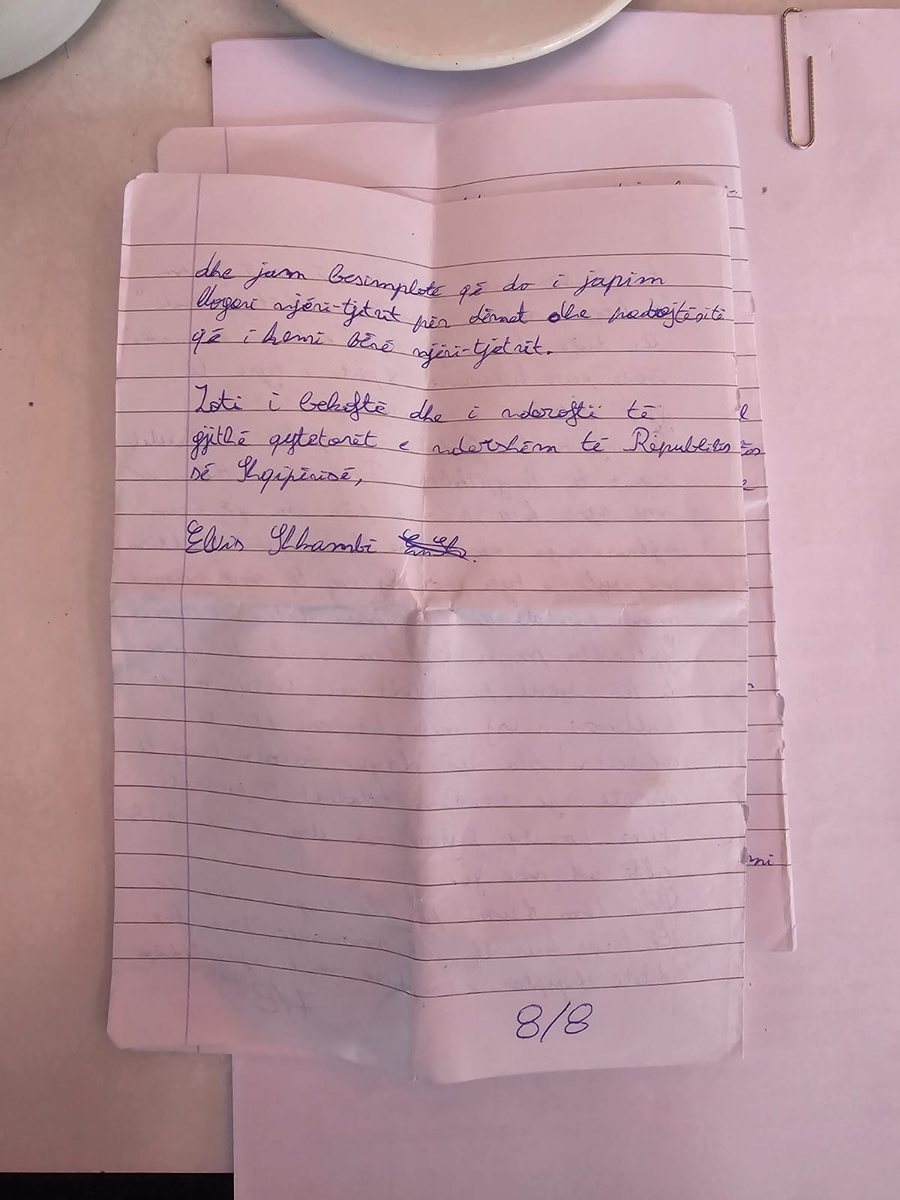 dhe jam besimplotë që do i japim
llogari njëri-tjetrit për dëmet dhe padrejtësitë
që i kemi bërë njëri-tjetrit.
Zoti i bekoftë dhe i ndероftë të
gjithë qytetarët e ndershëm të Republikës
së Shqipërisë,
Elvis Shkambi
8/8